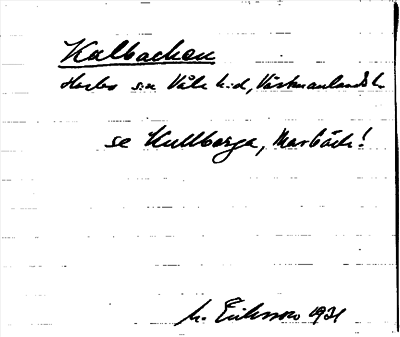 Kalbacken
Harbo s:n Våla h:d, Västmanlands l.
se Kullberga, Marbäck!
M. Eriksson 1931